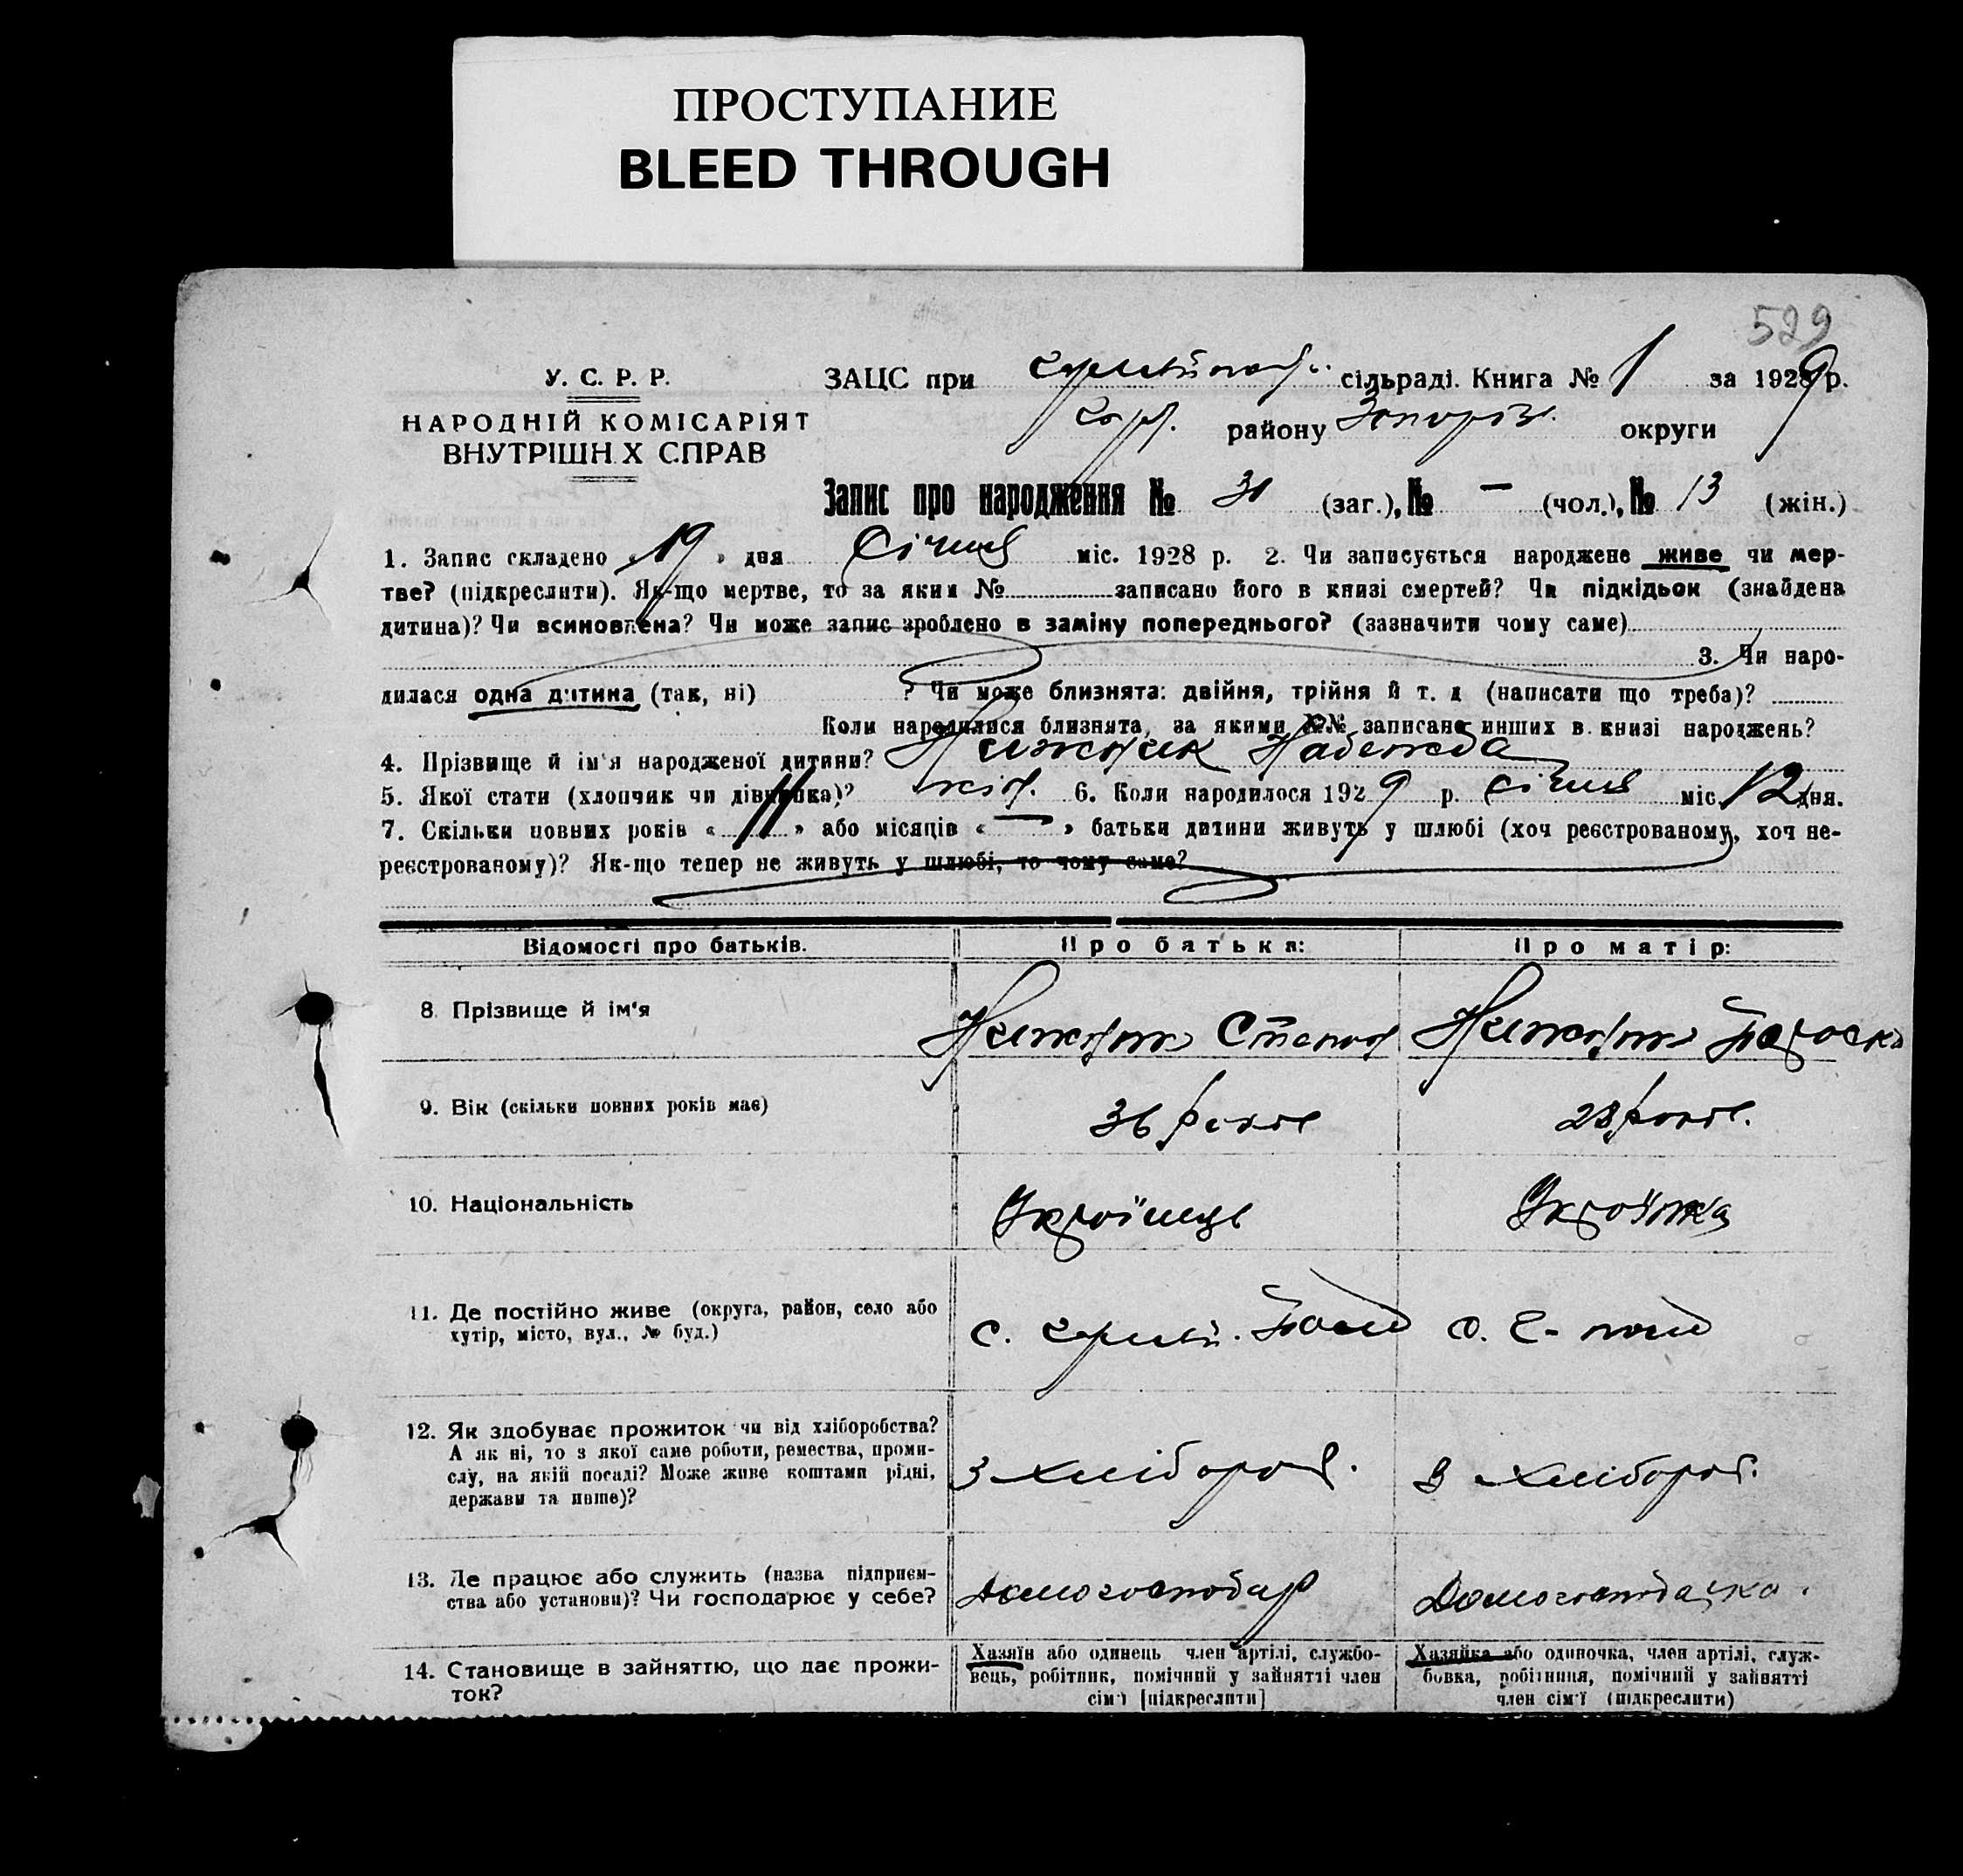 ПРОСТУПАНИЕ
BLEED THROUGH
529
У. С. Р. Р.
НАРОДНІЙ КОМІСАРІЯТ
ВНУТРІШН Х СПРАВ
ЗАЦС при сільраді. Книга № 1 за 1929 р.
району Запоріз. округи
Запис про народження № 31 (заг.), № — (чол.), № 13 (жін.)
1. Запис складено « 19 » дня Січня міс. 1928 р. 2. Чи записується народжене живе чи мер-
тве? (підкреслити). Як-що мертве, то за яким № записано його в книзі смертей? Чи підкідьок (знайдена
дитина)? Чи всиновлена? Чи може запис зроблено в заміну попереднього? (зазначити чому саме)
3. Чи наро-
дилася одна дитина (так, ні) ? Чи може близнята: двійня, трійня й т. д (написати що треба)?
Коли народилися близнята, за якими №№ записано инших в книзі народжень?
4. Прізвище й ім'я народженої дитини? Надежда
5. Якої стати (хлопчик чи дівчинка)? жіноч. 6. Коли народилося 1929 р. Січня міс. 12 дня.
7. Скільки повних років « 11 » або місяців « — » батьки дитини живуть у шлюбі (хоч реєстрованому, хоч не-
реєстрованому)? Як-що тепер не живуть у шлюбі, то чому саме?
Відомості про батьків. Про батька: Про матір:
8. Прізвище й ім'я Степан
9. Вік (скільки повних років має) 36 років 28 років.
10. Національність Українець Українка
11. Де постійно живе (округа, район, село або
хутір, місто, вул., № буд.)
12. Як здобуває прожиток чи від хліборобства?
А як ні, то з якої саме роботи, ремества, проми-
слу, на якій посаді? Може живе коштами рідні,
держави та инше)?
З хлібороб. З хлібороб.
13. Де працює або служить (назва підприєм-
ства або установи)? Чи господарює у себе?
Домогосподар Домогосподарка.
14. Становище в зайняттю, що дає прожи-
ток?
Хазяїн або одинець член артілі, службо-
вець, робітник, помічний у зайнятті член
сім'ї [підкреслити]
Хазяйка або одиночка, член артілі, служ-
бовка, робітниця, помічний у зайнятті
член сім'ї (підкреслити)